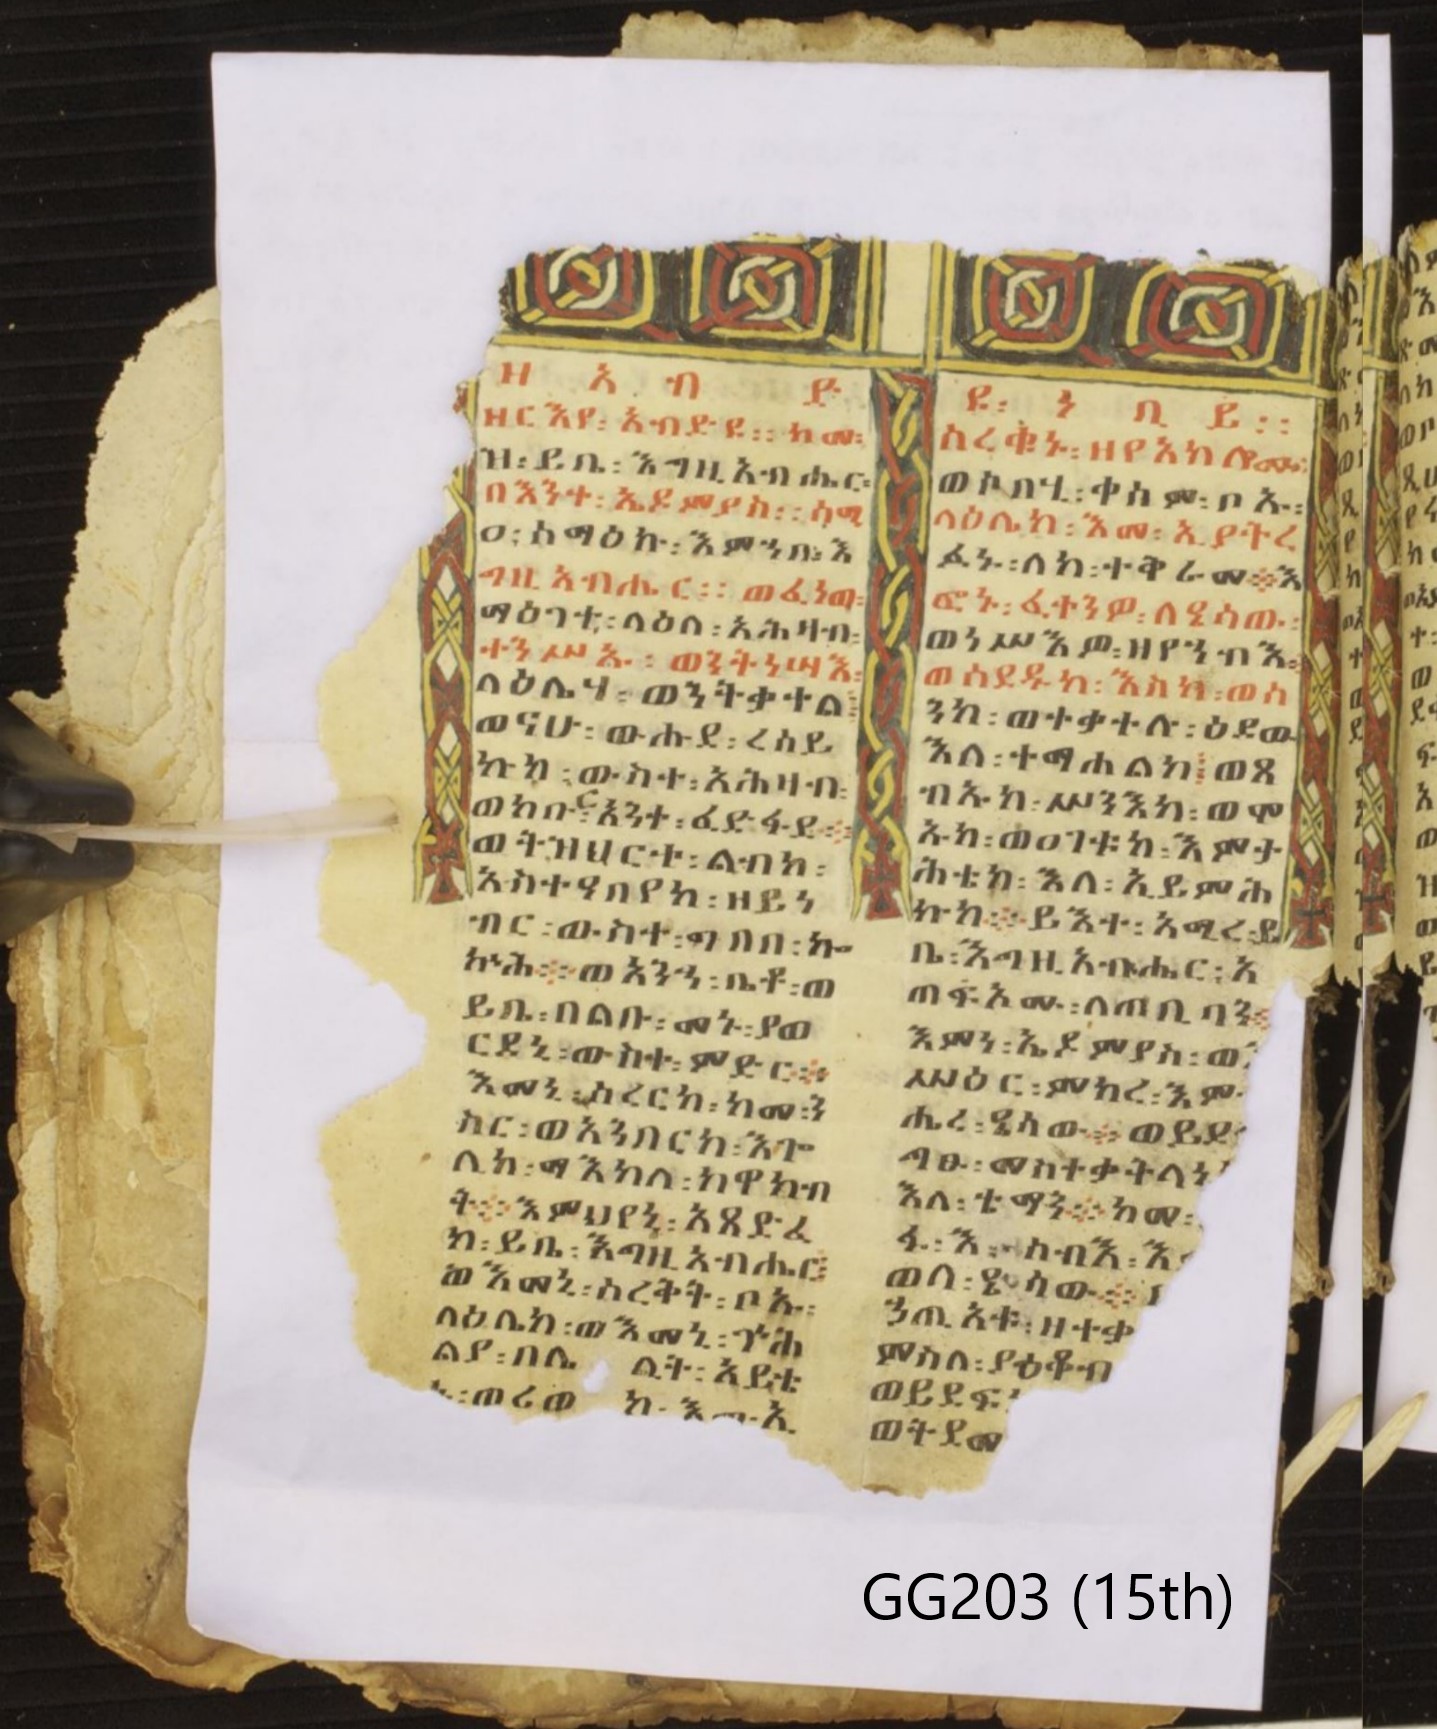 ዘ አ ብ ድ ዩ፡ ነ ቢ ይ ፡፡
ዘርእየ፡ አብድዩ፡፡ ከመ፡
ዝ፡ ይቤ፡ እግዚአብሔር፡
በእንተ፡ ኤዶምያስ፡፡ ሰሚ
ዐ፡ ሰማዕኩ፡ እምኀበ፡ እ
ግዚአብሔር፡፡ ወፈነወ፡
ማዕገተ፡ ላዕለ፡ አሕዛብ፡
ተንሥኡ፡ ወንትነሣእ፡
ላዕሌሃ፡ ወንትቃተል፤
ወናሁ፡ ውሑደ፡ ረሰይ
ኩከ፡ ውስተ፡ አሕዛብ፡
ወከቡር፡ አንተ፡ ፈድፋደ፨
ወትዝህርተ፡ ልብከ፡
አስተዓበየከ፡ ዘይነ
ብር፡ ውስተ፡ ግበበ፡ ኰ
ኵሕ፨ ወአንኀ፡ ቤቶ፡ ወ
ይቤ፡ በልቡ፡ መኑ፡ ያወ
ርደኒ፡ ውስተ፡ ምድር፨
እመኒ፡ ሰረርከ፡ ከመ፡ ን
ስር፡ ወአንበርከ፡ እጐ
ሊከ፡ ማእከለ፡ ከዋክብ
ት፨ እምህየኒ፡ አጸድፈ
ከ፡ ይቤ፡ እግዚአብሔር፤
ወእመኒ፡ ሰረቅት፡ ቦኡ፡
ላዕሌከ፡ ወእመኒ፡ ጕሕ
ልያ፡ በሌ ሊት፡ አይቴ
ጠሪወ ከ፡
ሰረቁኑ፡ ዘየአክሎሙ፡
ወኮበሂ፡ ቀሰም፡ ቦኡ፡
ላዕሌከ፡ እመ፡ ኢያትረ
ፈኑ፡ ለከ፡ ተቅራመ፨ እ
ፎኑ፡ ፈተንዎ፡ ለዔሳው፡
ወነሥእዎ፡ ዘየኀብእ፡
ወሰደዱከ፡ እስከ፡ ወሰ
ንከ፡ ወተቃተሉ፡ ዕደው
እለ፡ ተማሐልከ፤ ወጸ
ብኡከ፡ ሥንእከ፡ ወሞ
ኡከ፡ ወዐገቱከ፡ እምታ
ሕቴከ፡ እለ፡ ኢይምሕ
ኩከ፨ ይእተ፡ አሚረ፡ ይ
ቤ፡ እግዚአብሔር፡ አ
ጠፍኦሙ፡ ለጠቢባን፨
እምነ፡ ኤዶምያስ፡ ወ
ሥዕር፡ ምክረ፡ እም
ሔረ፡ ዔሳው፨ ወይደ
ግፁ፡ መስተቃትላን
እለ፡ ቴማን፨ ከመ፡
ፋ፡ እ ሰብእ፡ እ
ወሰ፡ ዔሳው፨
ኀጢአቱ፡ ዘተቃ
ምስለ፡ ያዕቆብ
ወይደፍ
ወትደመ
GG203 (15th)